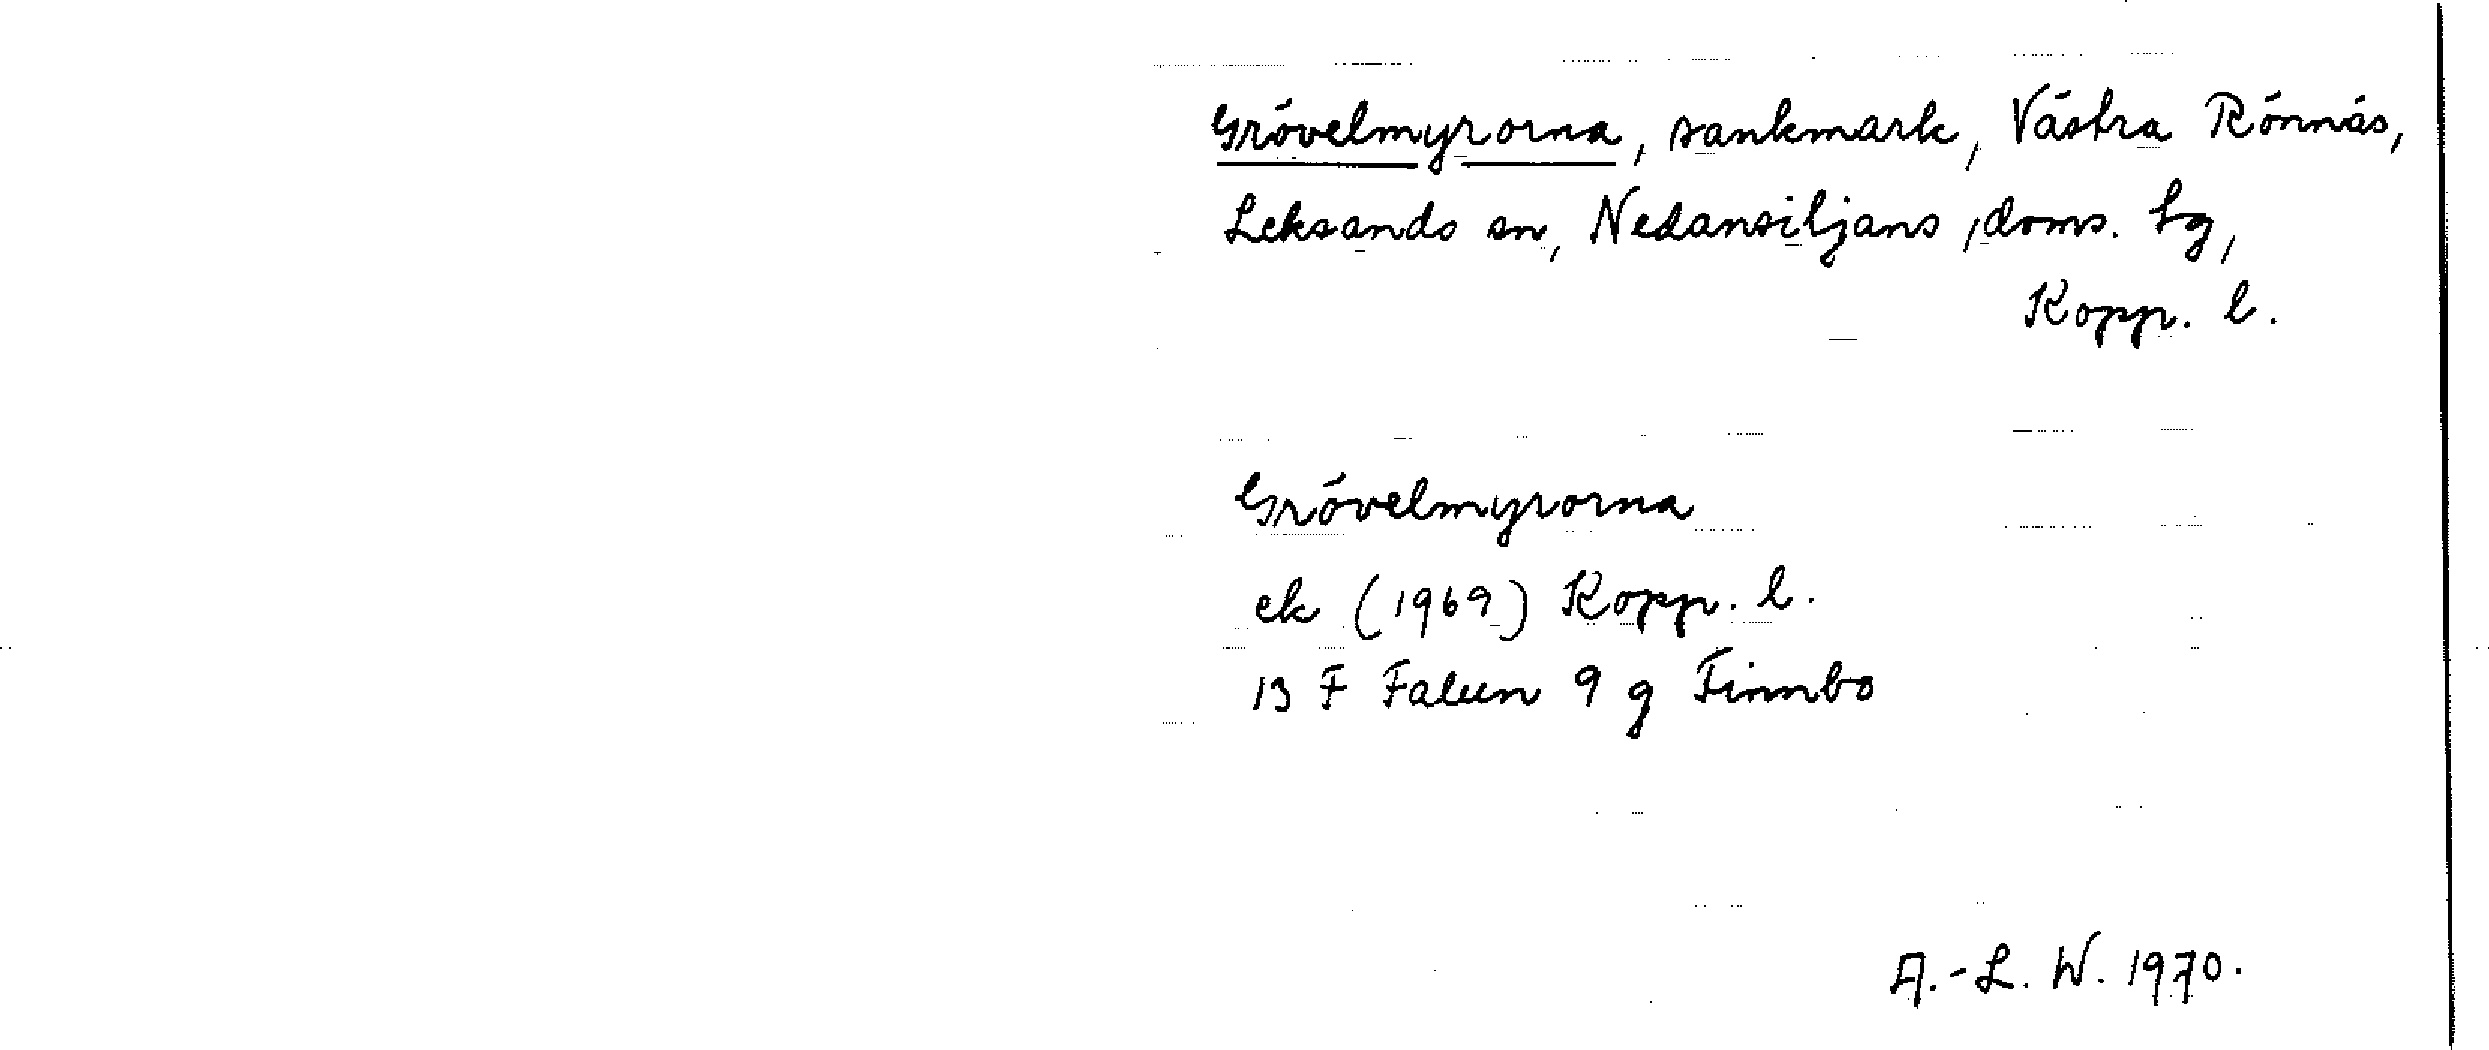 Grövelmyrorna, sankmark, Västra Rönnäs,
Leksands sn, Nedansiljans doms. tg,
Kopp. l.
Grövelmyrorna
ek (1969) Kopp. l.
13 F Falun 9 g Finnbo
A.-L. W. 1970.